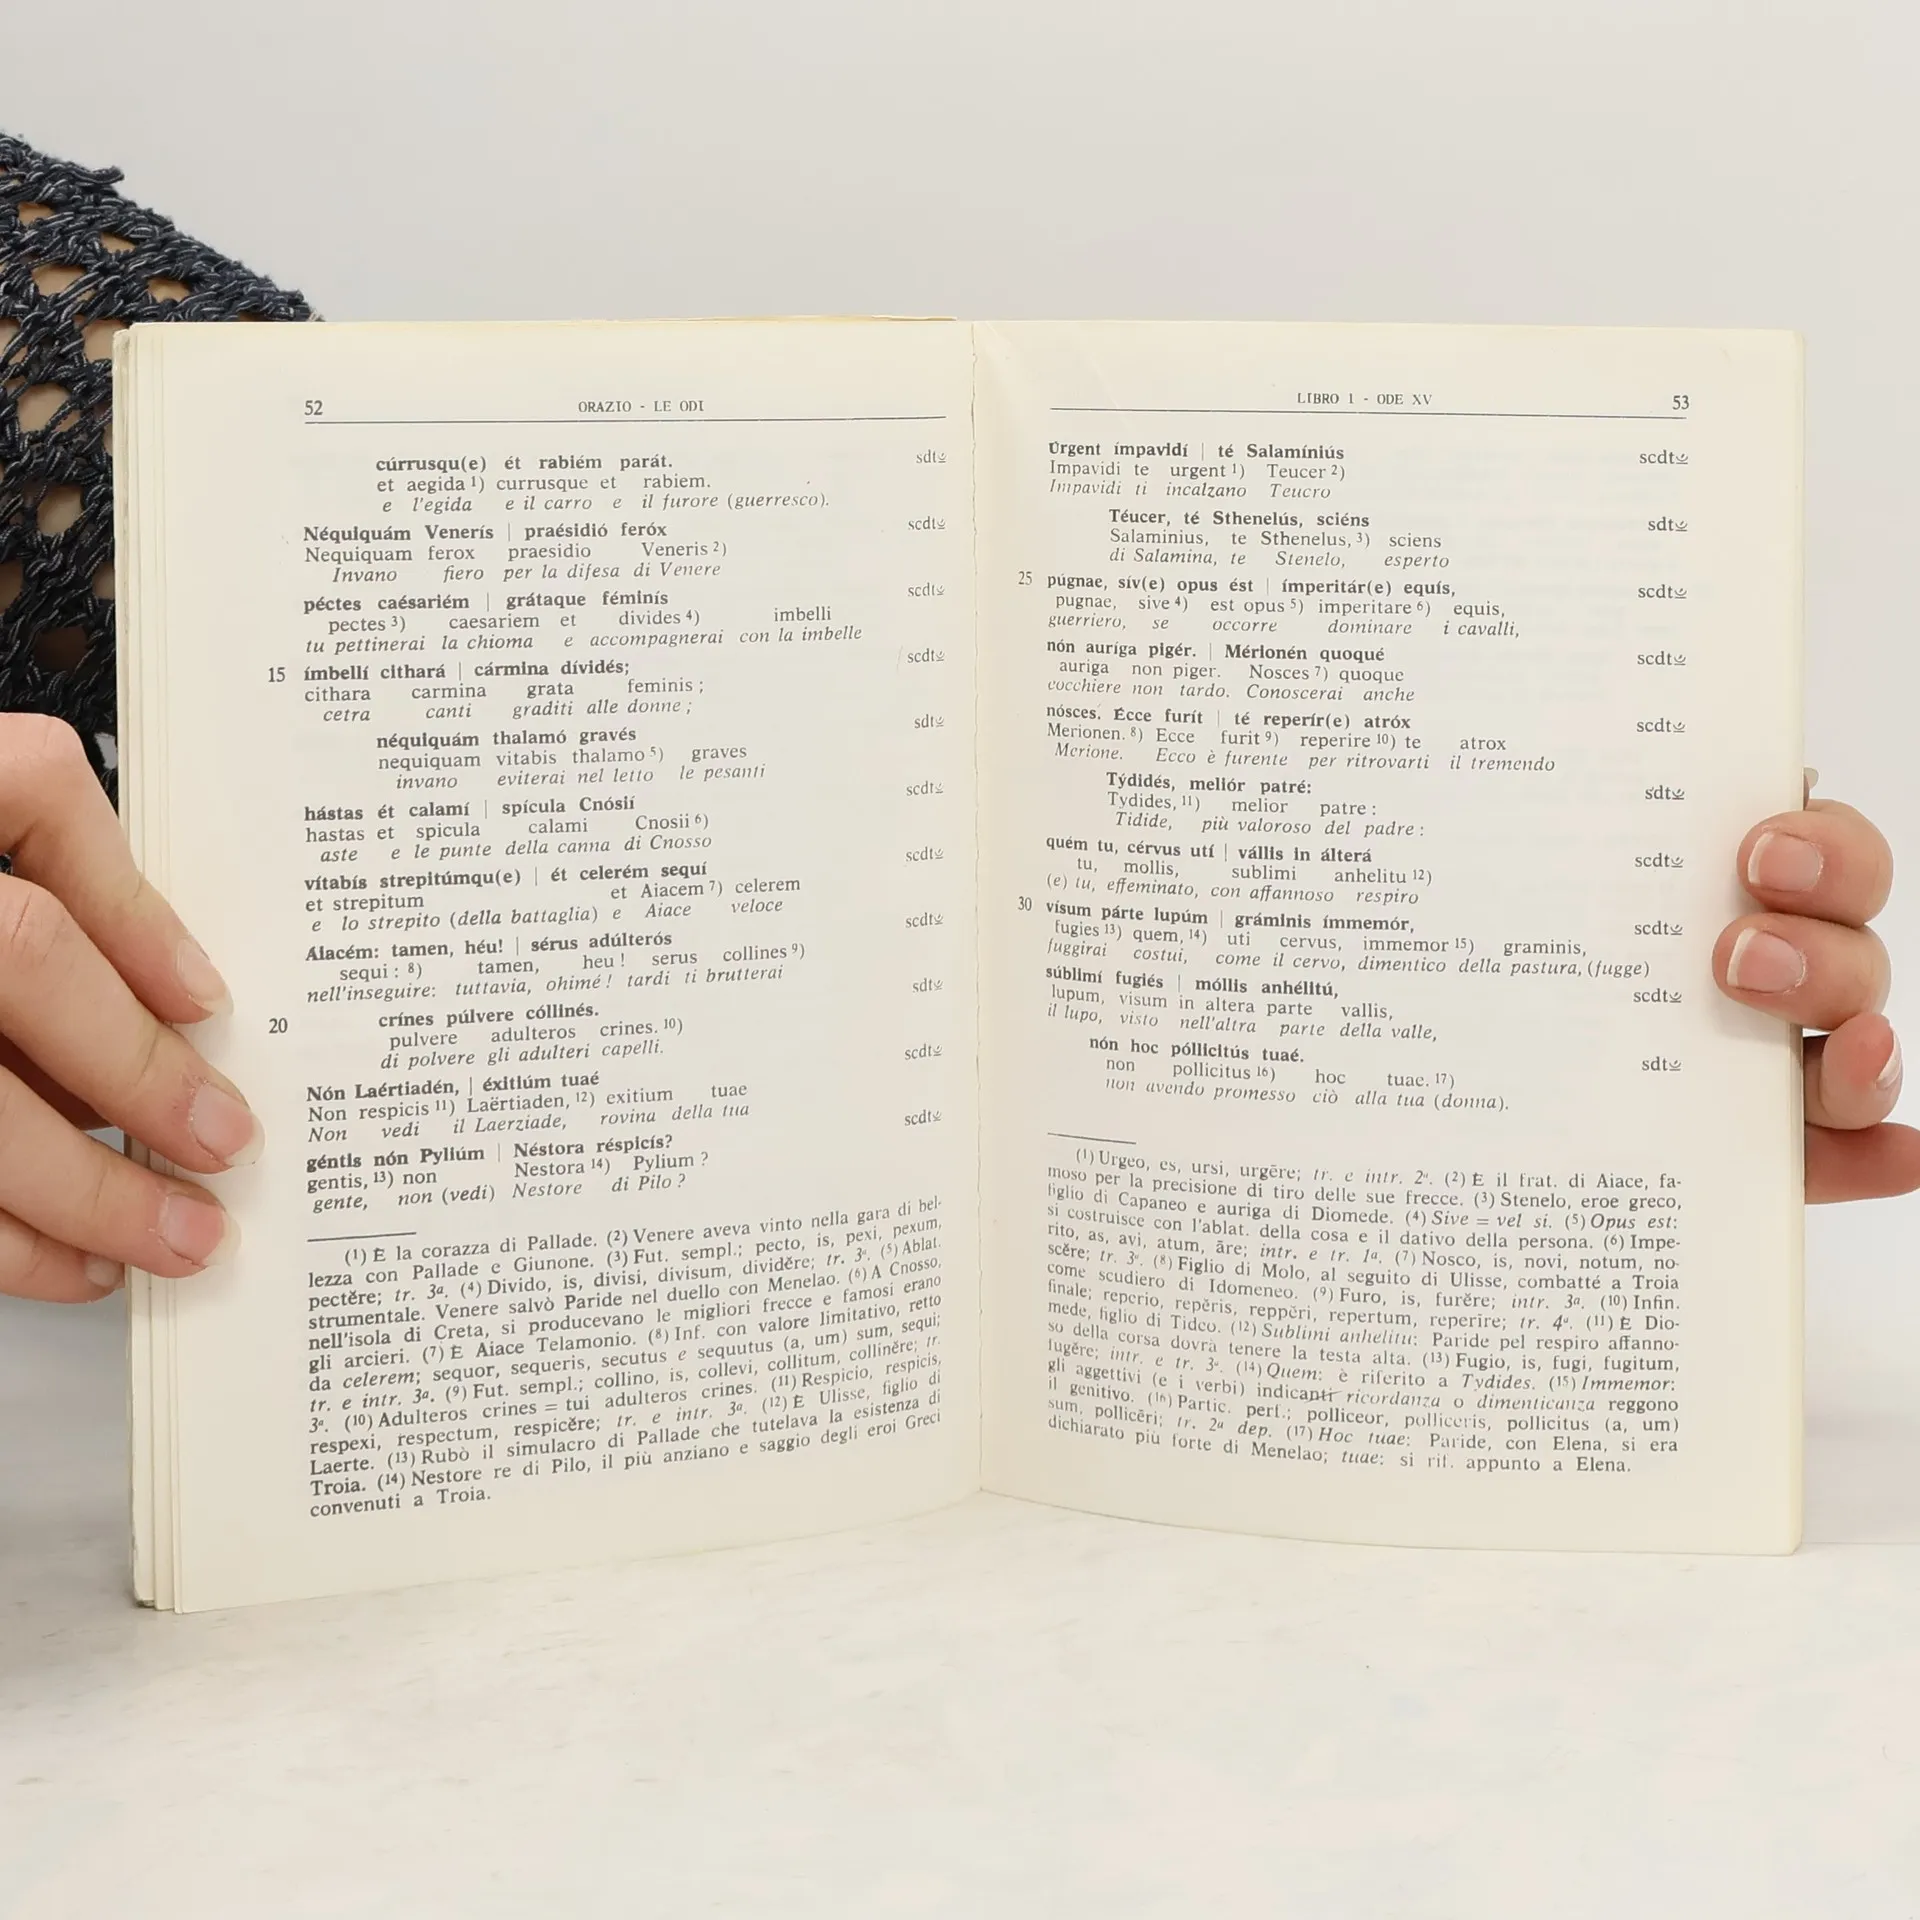 52 ORAZIO - LE ODI
cúrrusqu(e) ét rabiém parát. sdt⏓
et aegida ¹) currusque et rabiem.
e l'egida e il carro e il furore (guerresco).
Néquiquám Venerís | praésidió feróx scdt⏓
Nequiquam ferox praesidio Veneris ²)
Invano fiero per la difesa di Venere
péctes caésariém | grátaque féminís scdt⏓
pectes ³) caesariem et divides ⁴) imbelli
tu pettinerai la chioma e accompagnerai con la imbelle
15 ímbellí cithará | cármina dívidés; scdt⏓
cithara carmina grata feminis ;
cetra canti graditi alle donne ;
néquiquám thalamó gravés sdt⏓
nequiquam vitabis thalamo ⁵) graves
invano eviterai nel letto le pesanti
hástas ét calamí | spícula Cnósií scdt⏓
hastas et spicula calami Cnosii ⁶)
aste e le punte della canna di Cnosso
vítabís strepitúmqu(e) | ét celerém sequí scdt⏓
et strepitum et Aiacem ⁷) celerem
e lo strepito (della battaglia) e Aiace veloce
Aíacém: tamen, héu! | sérus adúlterós scdt⏓
sequi : ⁸) tamen, heu ! serus collines ⁹)
nell'inseguire: tuttavia, ohimé ! tardi ti brutterai
20 crínes púlvere cóllinés. sdt⏓
pulvere adulteros crines. ¹⁰)
di polvere gli adulteri capelli.
Nón Laértiadén, | éxitiúm tuaé scdt⏓
Non respicis ¹¹) Laërtiaden, ¹²) exitium tuae
Non vedi il Laerziade, rovina della tua
géntis nón Pyliúm | Néstora réspicís? scdt⏓
gentis, ¹³) non Nestora ¹⁴) Pylium ?
gente, non (vedi) Nestore di Pilo ?
(¹) È la corazza di Pallade. (²) Venere aveva vinto nella gara di bel-
lezza con Pallade e Giunone. (³) Fut. sempl.; pecto, is, pexi, pexum,
pectĕre; tr. 3ª. (⁴) Divido, is, divisi, divisum, dividĕre; tr. 3ª. (⁵) Ablat.
strumentale. Venere salvò Paride nel duello con Menelao. (⁶) A Cnosso,
nell'isola di Creta, si producevano le migliori frecce e famosi erano
gli arcieri. (⁷) È Aiace Telamonio. (⁸) Inf. con valore limitativo, retto
da celerem; sequor, sequeris, secutus e sequutus (a, um) sum, sequi;
tr. e intr. 3ª. (⁹) Fut. sempl.; collino, is, collevi, collitum, collinĕre; tr.
3ª. (¹⁰) Adulteros crines = tui adulteros crines. (¹¹) Respicio, respicis,
respexi, respectum, respicĕre; tr. e intr. 3ª. (¹²) È Ulisse, figlio di
Laerte. (¹³) Rubò il simulacro di Pallade che tutelava la esistenza di
Troia. (¹⁴) Nestore re di Pilo, il più anziano e saggio degli eroi Greci
convenuti a Troia.
LIBRO I - ODE XV 53
Úrgent ímpavidí | té Salamíniús scdt⏓
Impavidi te urgent ¹) Teucer ²)
Impavidi ti incalzano Teucro
Téucer, té Sthenelús, sciéns sdt⏓
Salaminius, te Sthenelus, ³) sciens
di Salamina, te Stenelo, esperto
25 púgnae, sív(e) opus ést | ímperitár(e) equís, scdt⏓
pugnae, sive ⁴) est opus ⁵) imperitare ⁶) equis,
guerriero, se occorre dominare i cavalli,
nón auríga pigér. | Mérionén quoqué scdt⏓
auriga non piger. Nosces ⁷) quoque
cocchiere non tardo. Conoscerai anche
nósces. Écce furít | té reperír(e) atróx scdt⏓
Merionen. ⁸) Ecce furit ⁹) reperire ¹⁰) te atrox
Merione. Ecco è furente per ritrovarti il tremendo
Týdidés, meliór patré: sdt⏓
Tydides, ¹¹) melior patre :
Tidide, più valoroso del padre :
quém tu, cérvus utí | vállis in álterá scdt⏓
tu, mollis, sublimi anhelitu ¹²)
(e) tu, effeminato, con affannoso respiro
30 vísum párte lupúm | gráminis ímmemór, scdt⏓
fugies ¹³) quem, ¹⁴) uti cervus, immemor ¹⁵) graminis,
fuggirai costui, come il cervo, dimentico della pastura, (fugge)
súblimí fugiés | móllis anhélitú, scdt⏓
lupum, visum in altera parte vallis,
il lupo, visto nell'altra parte della valle,
nón hoc póllicitús tuaé. sdt⏓
non pollicitus ¹⁶) hoc tuae. ¹⁷)
non avendo promesso ciò alla tua (donna).
(¹) Urgeo, es, ursi, urgēre; tr. e intr. 2ª. (²) È il frat. di Aiace, fa-
moso per la precisione di tiro delle sue frecce. (³) Stenelo, eroe greco,
figlio di Capaneo e auriga di Diomede. (⁴) Sive = vel si. (⁵) Opus est:
si costruisce con l'ablat. della cosa e il dativo della persona. (⁶) Impe-
rito, as, avi, atum, āre; intr. e tr. 1ª. (⁷) Nosco, is, novi, notum, no-
scĕre; tr. 3ª. (⁸) Figlio di Molo, al seguito di Ulisse, combatté a Troia
come scudiero di Idomeneo. (⁹) Furo, is, furĕre; intr. 3ª. (¹⁰) Infin.
finale; reperio, repĕris, reppĕri, repertum, reperire; tr. 4ª. (¹¹) È Dio-
mede, figlio di Tideo. (¹²) Sublimi anhelitu: Paride pel respiro affanno-
so della corsa dovrà tenere la testa alta. (¹³) Fugio, is, fugi, fugitum,
fugĕre; intr. e tr. 3ª. (¹⁴) Quem: è riferito a Tydides. (¹⁵) Immemor:
gli aggettivi (e i verbi) indicanti ricordanza o dimenticanza reggono
il genitivo. (¹⁶) Partic. perf.; polliceor, polliceris, pollicitus (a, um)
sum, pollicēri; tr. 2ª dep. (¹⁷) Hoc tuae: Paride, con Elena, si era
dichiarato più forte di Menelao; tuae: si rif. appunto a Elena.